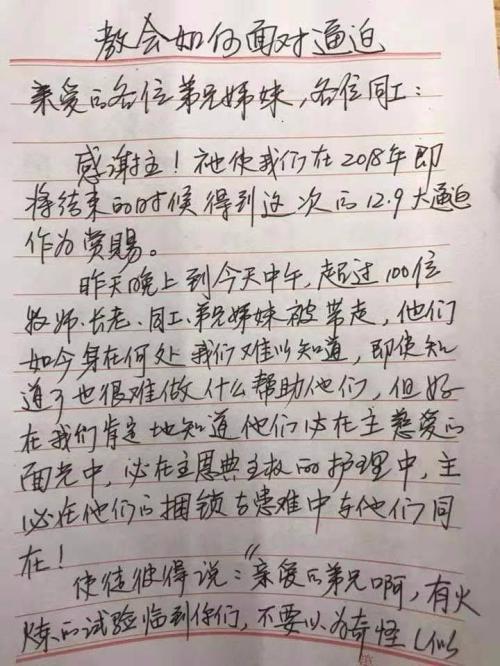 教会如何面对逼迫
亲爱的各位弟兄姊妹，各位同工：
感谢主！祂使我们在2018年即
将结束的时候得到这次的12.9大逼迫
作为赏赐。
昨天晚上到今天中午，超过100位
牧师、长老、同工、弟兄姊妹被带走，他们
如今身在何处我们难以知道，即使知
道了也很难做什么帮助他们，但好
在我们肯定地知道他们必在主慈爱的
面光中，必在主恩典主权的护理中，主
必在他们的捆锁与患难中与他们同
在！
使徒彼得说：“亲爱的弟兄啊，有火
炼的试验临到你们，不要以为奇怪（似